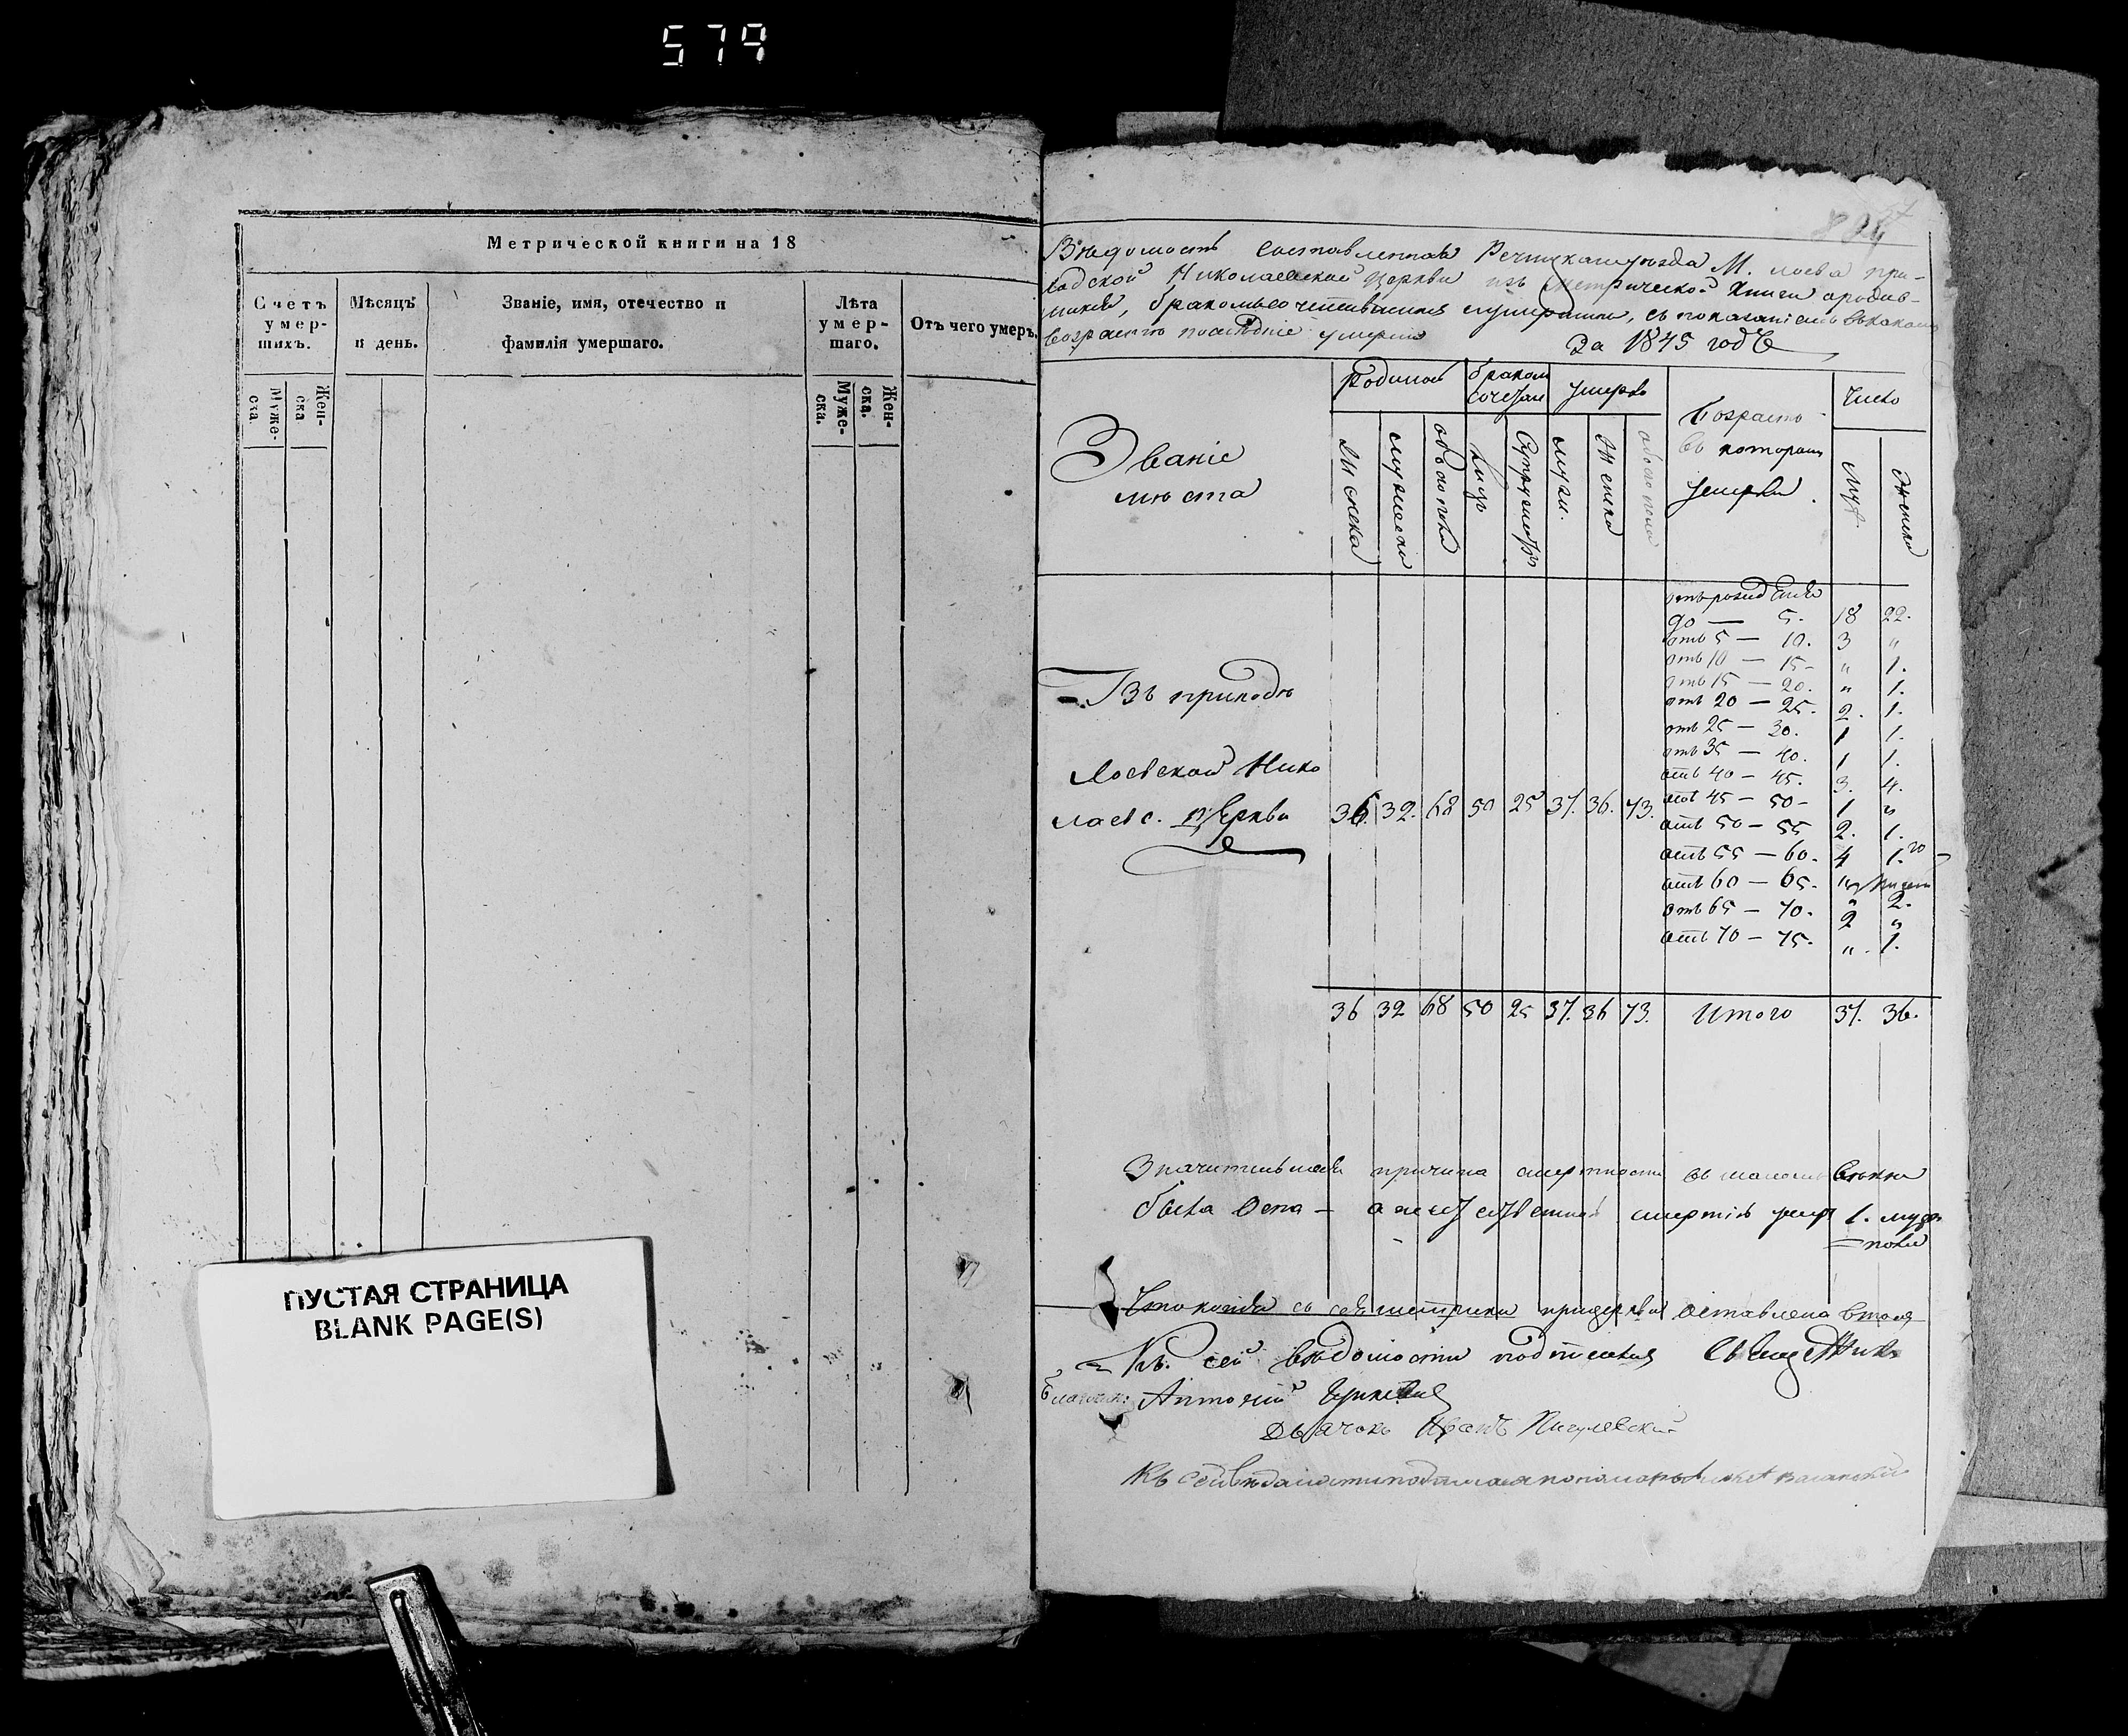 579
Метрической книги на 18
Счетъ умер- шихъ.
Мѣсяцъ и день.
Званіе, имя, отечество и
фамилія умершаго.
Лѣта умер- шаго.
Отъ чего умеръ.
Муже- ска.
Жен- ска
Муже- ска.
Жен- ска.
ПУСТАЯ СТРАНИЦА
BLANK PAGE(S)
Вѣдомость составленная Речицкаго уѣзда М. Лоева при-
ходской Николаевской Церкви изъ Метрической Книги о родив-
шихся, бракомъ сочетавшихся и умершихъ, съ показаніемъ въ какомъ
возрастѣ послѣдніе умерли
За 1845 годъ
Званіе
мѣста
Родилось
браком сочетан
умерло
Возрастъ
въ которомъ
умерли
Число
Женска
обоего пола
муж.
Женска
обоего пола
Муж.
Женска
отъ рожденія
до — 5. 18 22.
отъ 5 — 10. 3 "
отъ 10 — 15 - " 1.
отъ 15 — 20. " 1.
отъ 20 — 25. 2. 1.
отъ 25 — 30. 1 1.
отъ 35 — 40. 1 1.
отъ 40 — 45. 3. 4.
отъ 45 — 50 - 1 "
отъ 50 — 55 2. 1.
отъ 55 — 60. 4 1.
отъ 60 — 65. 2.
отъ 65 — 70. 2 "
отъ 70 — 75. " 1.
Въ приходѣ
Лоевской Нико
лаевс. Церкви 36. 32. 68 50 25 37. 36. 73.
36 32 68 50 25 37. 36 73. Итого 37. 36.
Значительная причина смертности въ малолѣ
была Оспа — смертію умер 1. муж.
пола
Что копія съ сей метрики при церкви оставлена
Къ сей вѣдомости подписался Священникъ
Антоній
Дьячокъ Иванъ Пигулевскій
Къ сей вѣдомости подписался пономарь